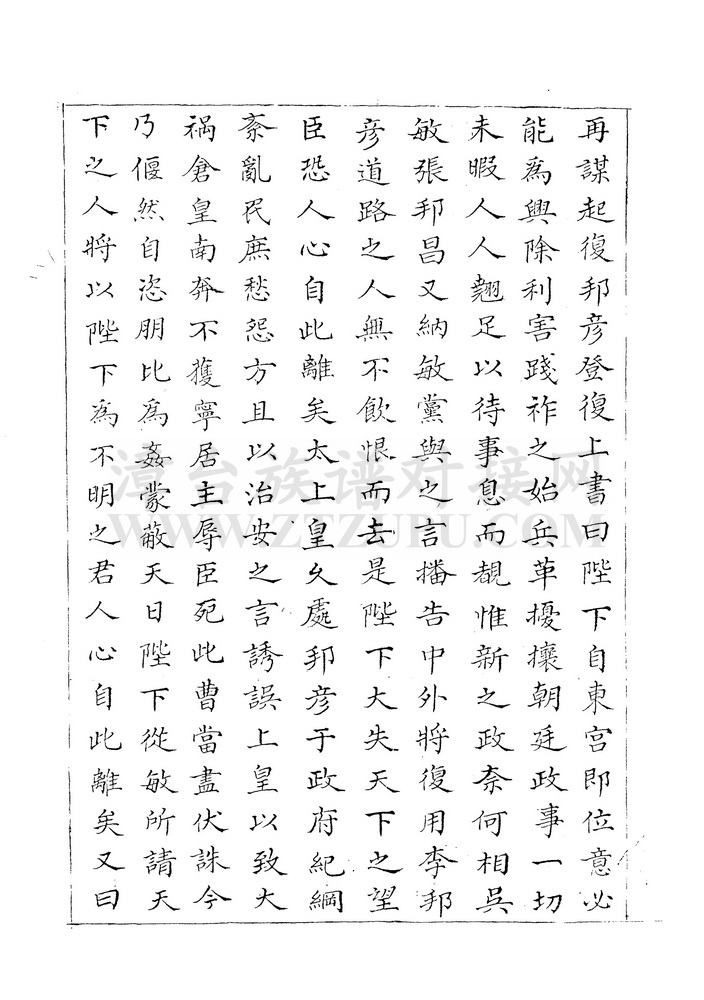 再謀起復邦彥登復上書曰陛下自東宮即位意必
能為興除利害踐祚之始兵革擾攘朝廷政事一切
未暇人人翹足以待事息而覩惟新之政奈何相吳
敏張邦昌又納敏黨與之言播告中外將復用李邦
彥道路之人無不飲恨而去是陛下大失天下之望
臣恐人心自此離矣太上皇久處邦彥于政府紀綱
紊亂民庶愁怨方且以治安之言誘誤上皇以致大
禍倉皇南奔不獲寧居主辱臣死此曹當盡伏誅今
乃偃然自恣朋比為姦蒙蔽天日陛下從敏所請天
下之人將以陛下為不明之君人心自此離矣又曰
漳台族谱对接网
WWW.ZTZUPU.COM